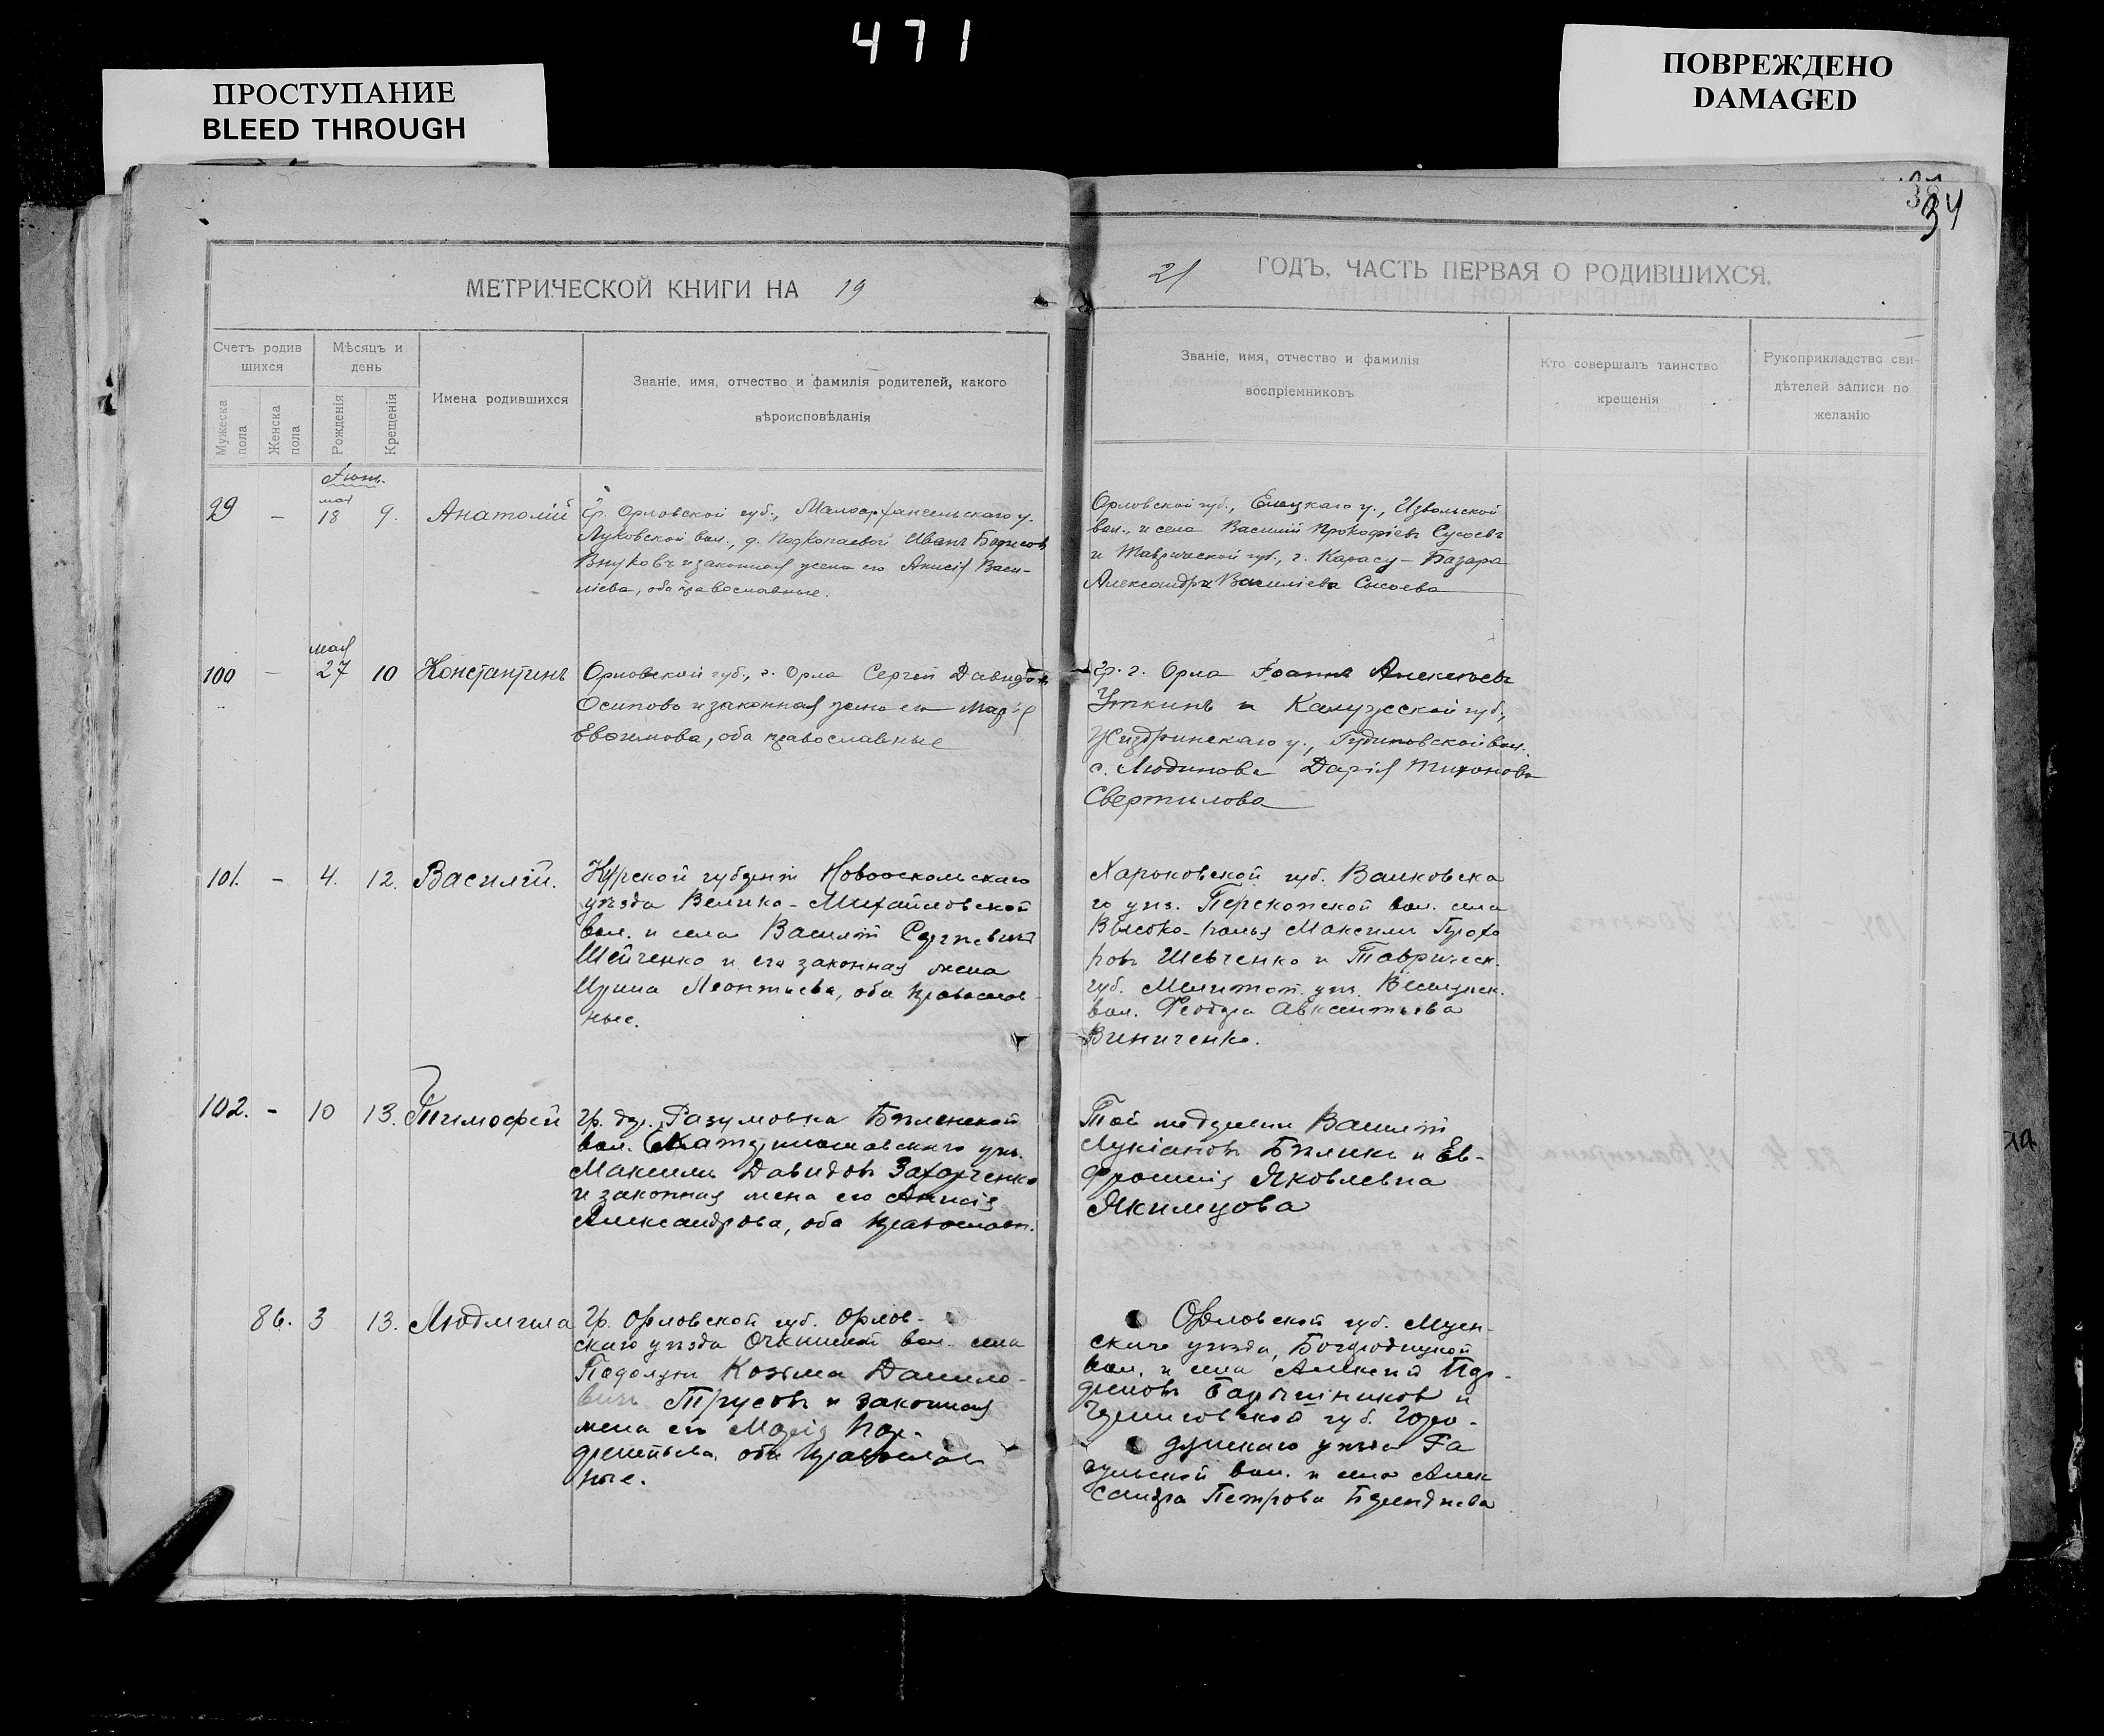 471
ПРОСТУПАНИЕ
BLEED THROUGH
ПОВРЕЖДЕНО
DAMAGED
34
МЕТРИЧЕСКОЙ КНИГИ НА 19
21 ГОДЪ, ЧАСТЬ ПЕРВАЯ О РОДИВШИХСЯ.
Счетъ родив
шихся
Мужеска
пола
Женска
пола
Мѣсяцъ и
день
Рожденія
Крещенія
Имена родившихся
Званіе, имя, отчество и фамилія родителей, какого
вѣроисповѣданія
Званіе, имя, отчество и фамилія
воспріемниковъ
Кто совершалъ таинство
крещенія
Рукоприкладство сви-
дѣтелей записи по
желанію
99 - мая 18 9. Анатолій
Гр. Орловской губ., Малоархангельскаго у.
Луковской вол., д. Подкопаевой Иванъ Борисов
Внуковъ и законная жена его Анисія Васи-
ліева, оба православные.
Орловской губ., Елецкаго у., Извольской
вол., и села Василій Прокофіевъ Сысоевъ
и Таврической губ., г. Карасу-Базара
Александра Василіева Сысоева
100 - мая 27 10 Константинъ
Орловской губ., г. Орла Сергей Давидов
Осипова и законная жена его Марія
Евфимова, оба православные
Гр. г. Орла Іоаннъ Алексѣевъ
Уткинъ и Калужской губ.,
Жиздринскаго у., вол.
с. Людинова Дарія Тихонова
Свертилова
101. - 4. 12. Василій.
Курской губерніи Новооскольскаго
уѣзда Велико-Михайловской
вол. и села Василій Сергѣевичъ
Шейченко и его законная жена
Ирина Леонтьева, оба православ-
ные.
Харьковской губ. Валковска
го уѣз. Перекопской вол. села
Высоко-полья Максимъ Прохо
ровъ Шевченко и Таврическ.
губ. Мелитоп. уѣз. Веселянск.
вол. Феодора Авксентьева
Виниченко.
102. - 10 13. Тимофей
Гр. дер. Разумовка Бѣленской
вол. Екатеринославскаго уѣз.
Максимъ Давидовъ Захарченко
и законная жена его Анисія
Александрова, оба православн.
Той же деревни Василій
Лукіановъ Бѣлик и Ев-
фросинія Яковлевна
Якимцова
86. 3 13. Людмила
Гр. Орловской губ. Орлов-
скаго уѣзда вол. села
Козьма Данило-
вичъ Трусовъ и законная
жена его Марія
оба православ
ные.
Орловской губ. Мцен-
скаго уѣзда, Богородицкой
вол. и села Алексей
и
Черниговской губ. Горо-
днискаго уѣзда
вол. и села Алек
сандра Петрова